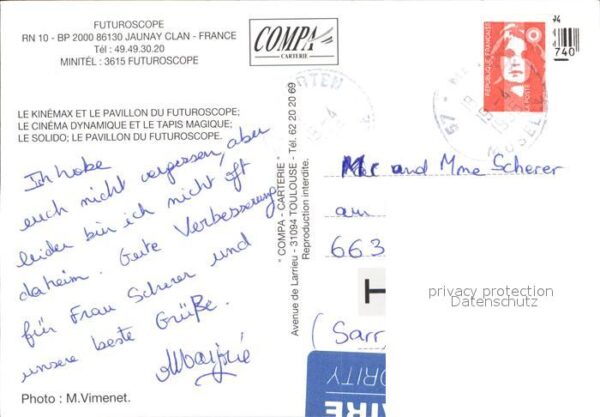 FUTUROSCOPE
RN 10 - BP 2000 86130 JAUNAY CLAN - FRANCE
Tél : 49.49.30.20
MINITÉL : 3615 FUTUROSCOPE
COMPA
CARTERIE
LE KINÉMAX ET LE PAVILLON DU FUTUROSCOPE;
LE CINÉMA DYNAMIQUE ET LE TAPIS MAGIQUE;
LE SOLIDO; LE PAVILLON DU FUTUROSCOPE.
Ich habe
euch nicht vergessen, aber
leider bin ich nicht oft
daheim. Gute Verbesserung
für Frau Scherer und
unsere beste Grüße.
Photo : M.Vimenet.
" COMPA - CARTERIE "
Avenue de Larrieu - 31094 TOULOUSE - Tél. 62 20 20 69
Reproduction interdite.
REPUBLIQUE FRANÇAISE
LA POSTE
740
57
MOSELLE
19-4
Mr and Mme Scherer
am
663
T
(Sarr
privacy protection
Datenschutz
AIRE
ORITY